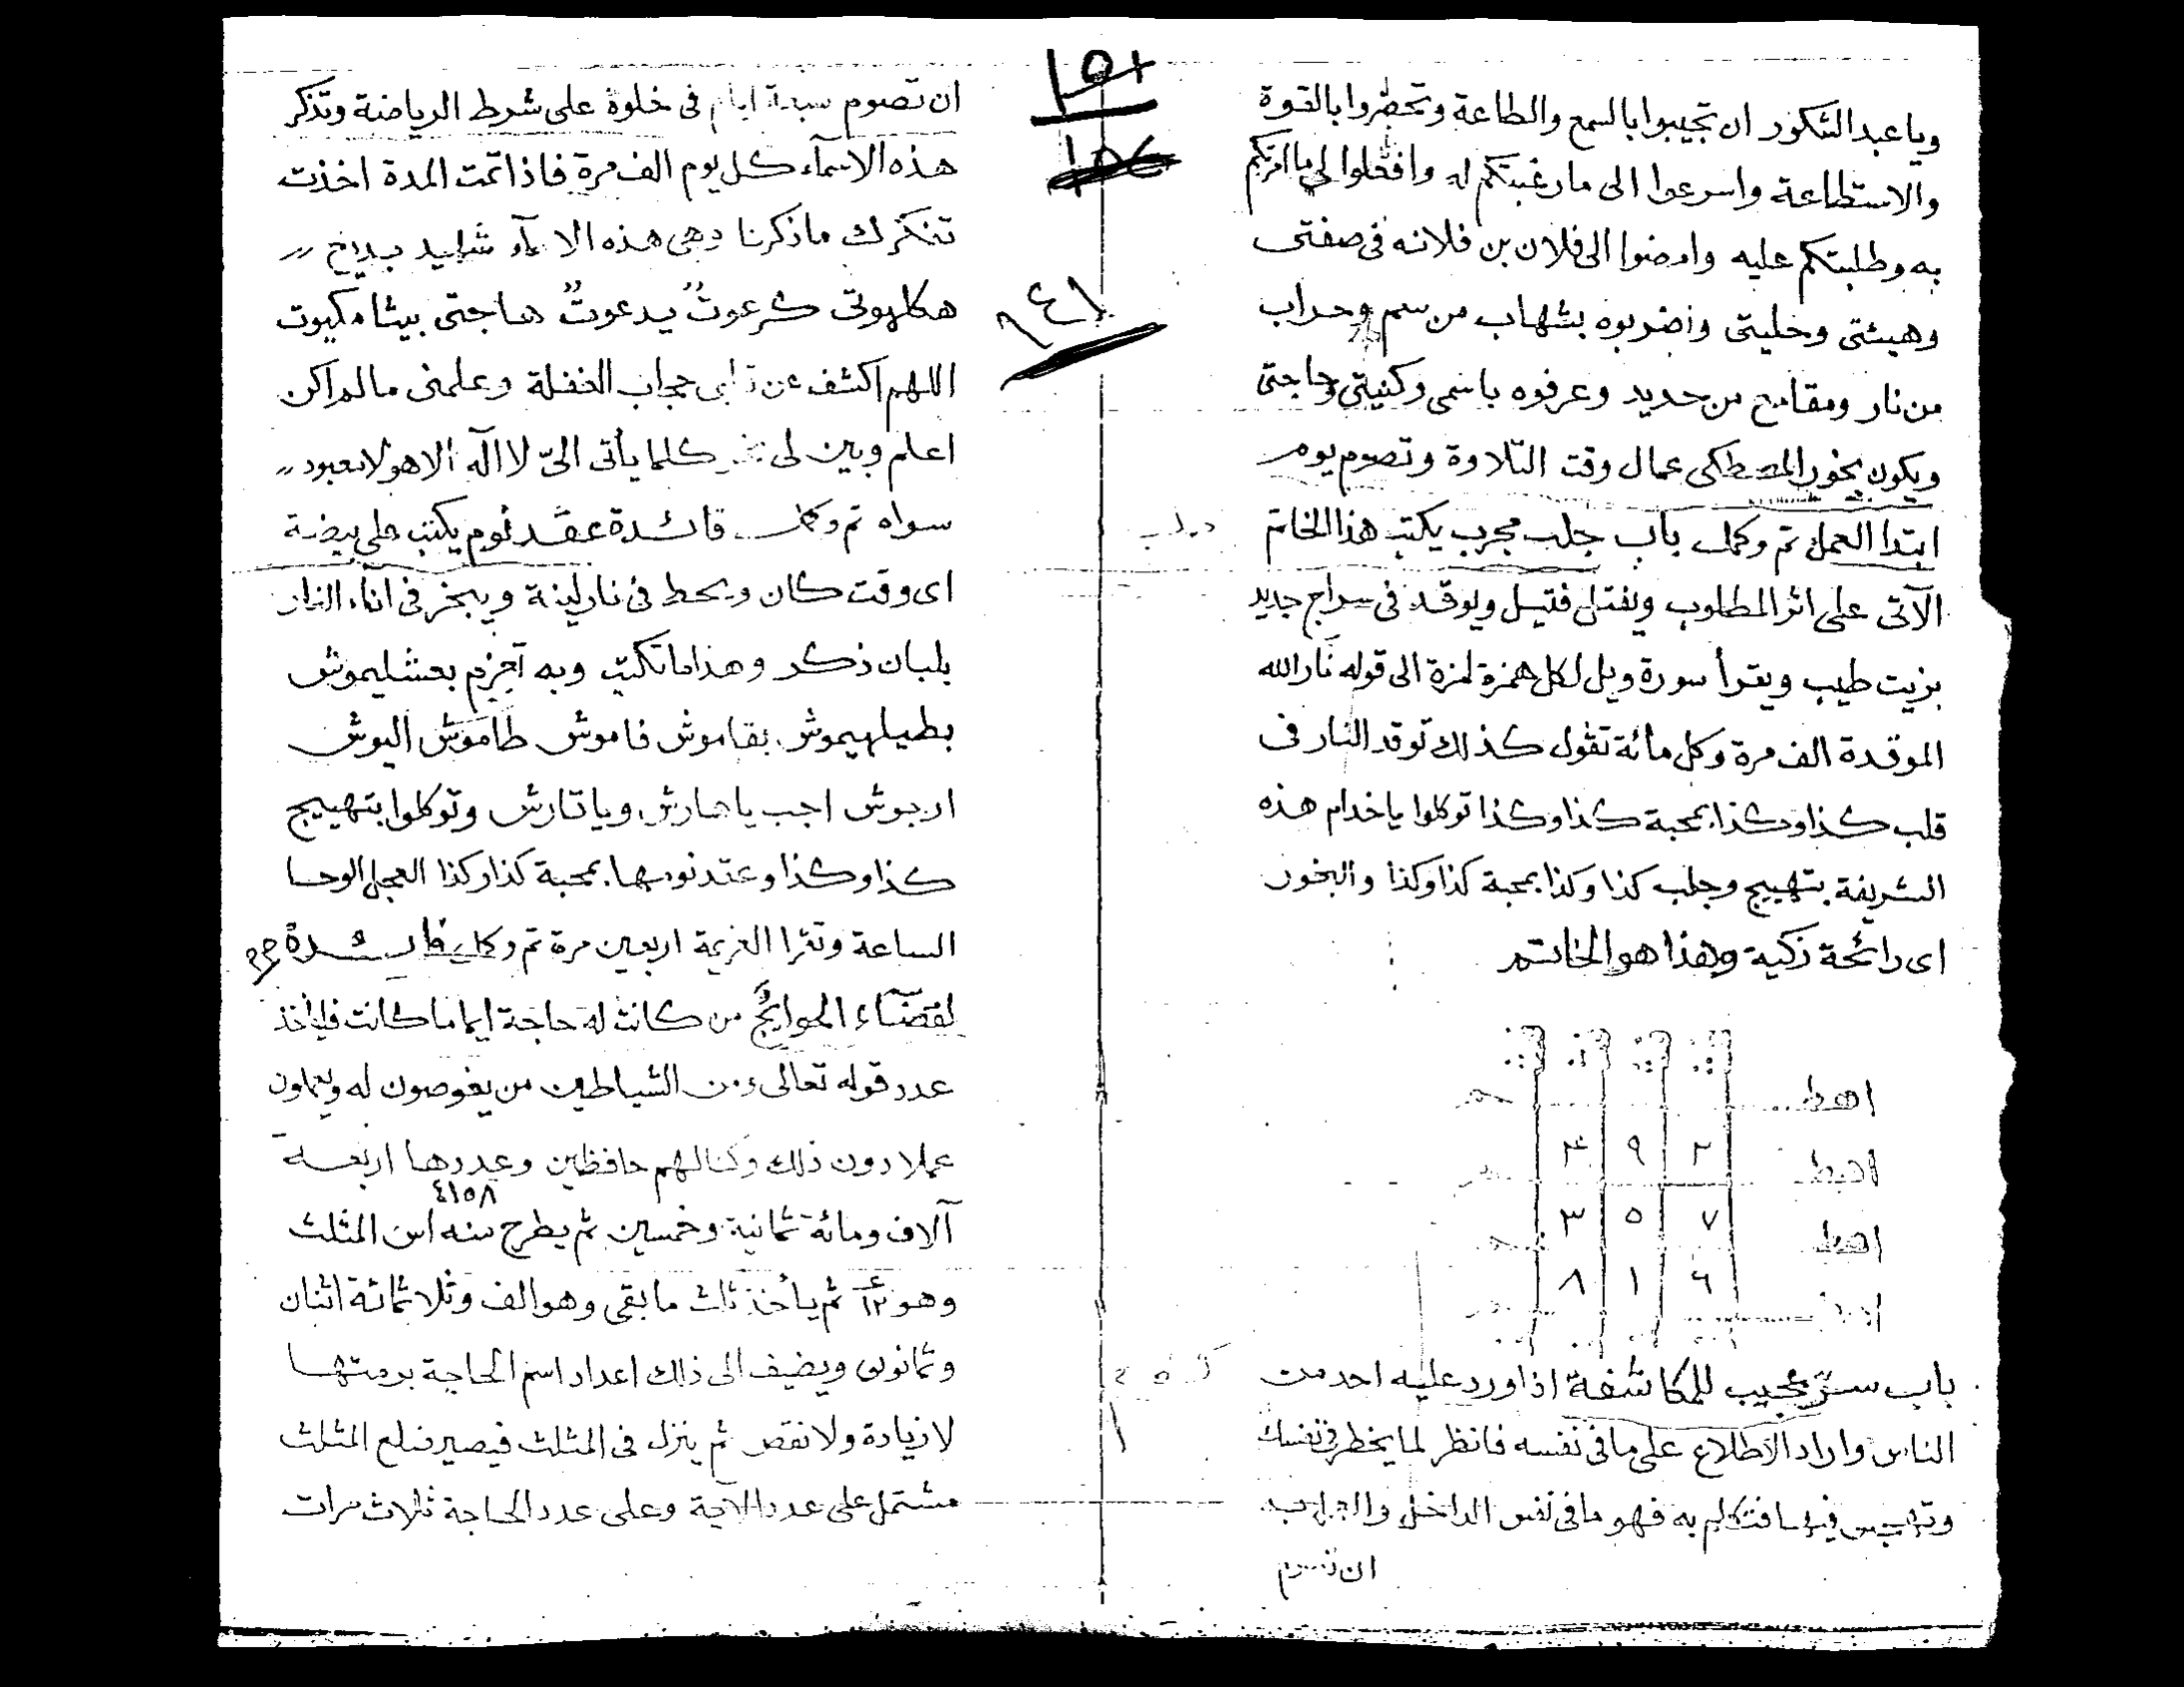 وياعبد الشكور ان تجيبوا بالسمع والطاعة وتحضروا بالقوة
والاستطاعة واسرعوا الى مارغبتكم له وافعلوا لي ما امرتكم
به وطلبتكم عليه وامضوا الى فلان بن فلانه فى صفتى
وهيئتى وحليتى واضربوه بشهاب من سم وحراب
من نار ومقامع من حديد وعرفوه باسمى وكنيتى وحاجتى
ويكون بخور المصطكى عمال وقت التلاوة وتصوم يوم
ابتدا العمل تم وكمل باب جلب مجرب يكتب هذا الخاتم
الآتى على اثر المطلوب ويفتل فتيل ويوقد فى سراج جديد
بزيت طيب ويقرأ سورة ويل لكل همزة لمزة الى قوله نار الله
الموقدة الف مرة وكل مائة تقول كذلك توقد النار فى
قلب كذا وكذا بمحبة كذا وكذا توكلوا ياخدام هذه
الشريفة بتهييج وجلب كذا وكذا بمحبة كذا وكذا والبخور
اى رائحة زكية وهذا هو الخاتم
اهط
٢ ٩ ٤
اهط
٧ ٥ ٣
اهط
٦ ١ ٨
باب سر عجيب للمكاشفة اذا ورد عليه احد من
الناس واراد الاطلاع على ما فى نفسه فانظر لما يخطر فى نفسك
فتكلم به فهو ما فى نفس الداخل
ان تصوم
١٥١
٩٤١
ان تصوم سبعة ايام فى خلوة على شرط الرياضة وتذكر
هذه الاسماء كل يوم الف مرة فاذا تمت المدة اخذت
ما ذكرنا وهى هذه الاسماء
هاجتى
اللهم اكشف عن حجاب الغفلة وعلمنى مالم اكن
اعلم وبين لى كلما يأتى الىّ لا اله الا هو لا معبود
سواه تم وكمل فائدة عقد نوم يكتب على بيضة
اى وقت كان ويحط فى نار لينة ويبخر فى اناء النار
بلبان ذكر وهذا ما تكتب وبه تعزم بعشليموش
بطيلهيموش بقاموش فاموش طاموش اليوش
اريوش اجب يا هارش ويا تارش وتوكلوا بتهييج
كذا وكذا وعقد نومها بمحبة كذا وكذا العجل الوحا
الساعة وتقرا العزيمة اربعين مرة تم وكمل فائدة
لقضاء الحوايج من كانت له حاجة ايما ما كانت فلياخذ
عدد قوله تعالى ومن الشياطين من يغوصون له ويعملون
عملا دون ذلك وكنا لهم حافظين وعددها اربعة
٤١٥٨
آلاف ومائة ثمانية وخمسين ثم يطرح منه اس المثلث
وهو ١٢ ثم يأخذ ثلث ما بقى وهو الف وثلاثمائة اثنان
وثمانون ويضيف الى ذلك اعداد اسم الحاجة برمتها
لا زيادة ولا نقص ثم ينزل فى المثلث فيصير ضلع المثلث
مشتمل على عدد الآية وعلى عدد الحاجة ثلاث مرات